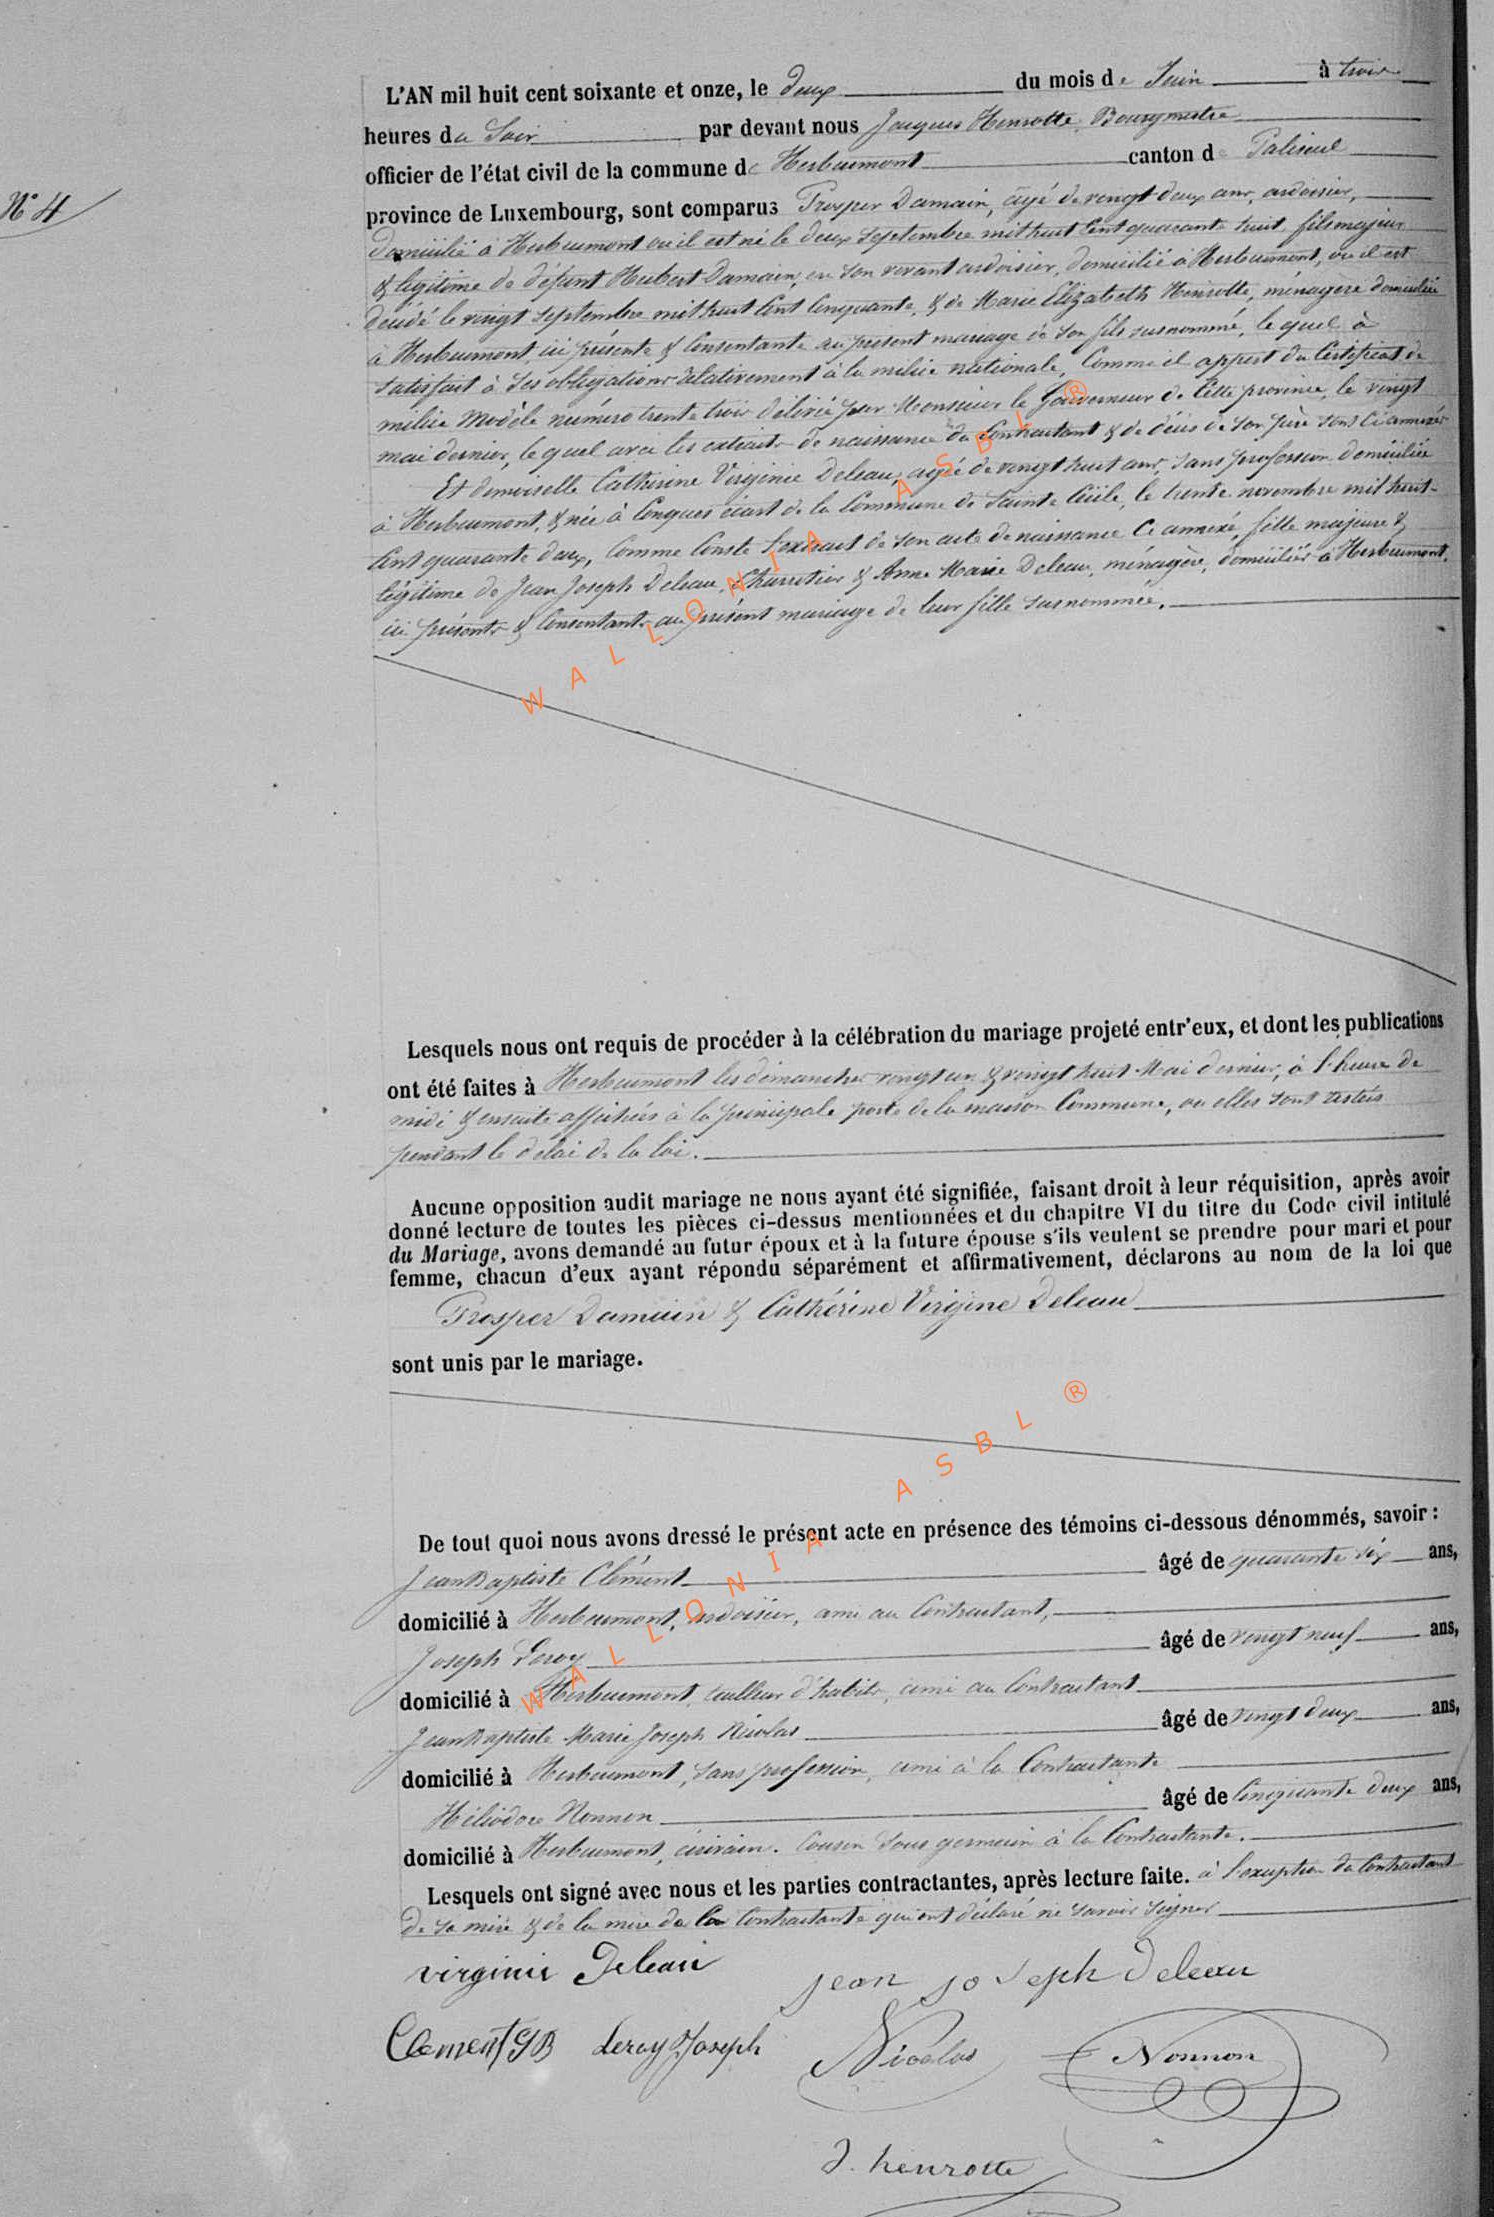 L'AN mil huit cent soixante et onze, le deux du mois de Juin à trois
heures du Soir par devant nous Jacques Henrotte, Bourgmestre
officier de l'état civil de la commune de Herbeumont canton de Paliseul
N° 4
province de Luxembourg, sont comparus Prosper Damain, âgé de vingt deux ans, ardoisier,
domicilié à Herbeumont où il est né le deux Septembre mil huit Cent quarante huit, fils majeur
& légitime de défunt Hubert Damain, en son vivant ardoisier, domicilié à Herbeumont, où il est
décédé le vingt septembre mil huit Cent Cinquante, & de Marie Elizabeth Henrotte, ménagère domiciliée
à Herbeumont ici présente & Consentante au présent mariage de son fils susnommé, le quel à
satisfait à ses obligations relativement à la milice nationale, Comme il appert du Certificat de
milice modèle numéro trente trois délivré par Monsieur le Gouverneur de Cette province, le vingt
mai dernier, le quel avec les extraits de naissance du Contractant & de décès de son père sont Ci annexés
Et demoiselle Catherine Virginie Deleau, agée de vingt huit ans, sans profession domiciliée
à Herbeumont, & née à Conques écart de la Commune de Sainte Cécile, le trente novembre mil huit-
Cent quarante deux, Comme Conste l'extrait de son acte de naissance Ci annexé, fille majeure &
légitime de Jean Joseph Deleau, Charretier & Anne Marie Deleau, ménagère, domiciliés à Herbeumont,
ici présents & Consentants au présent mariage de leur fille susnommée.
WALLONIA ASBL ®
Lesquels nous ont requis de procéder à la célébration du mariage projeté entr'eux, et dont les publications
ont été faites à Herbeumont les dimanches vingt un & vingt huit Mai dernier, à l'heure de
midi & ensuite affichées à la principale porte de la maison Commune, où elles sont restées
pendant le délai de la loi.
Aucune opposition audit mariage ne nous ayant été signifiée, faisant droit à leur réquisition, après avoir
donné lecture de toutes les pièces ci-dessus mentionnées et du chapitre VI du titre du Code civil intitulé
du Mariage, avons demandé au futur époux et à la future épouse s'ils veulent se prendre pour mari et pour
femme, chacun d'eux ayant répondu séparément et affirmativement, déclarons au nom de la loi que
Prosper Damain & Cathérine Virgine Deleau
sont unis par le mariage.
WALLONIA ASBL ®
De tout quoi nous avons dressé le présent acte en présence des témoins ci-dessous dénommés, savoir :
Jean Baptiste Clément âgé de quarante six ans,
domicilié à Herbeumont, ardoisier, ami au Contractant,
Joseph Leroy âgé de vingt neuf ans,
domicilié à Herbeumont, tailleur d'habits, ami au Contractant
Jean Baptiste Marie Joseph Nicolas âgé de vingt deux ans,
domicilié à Herbeumont, sans profession, ami à la Contractante
Héliodore Nonnon âgé de Cinquante deux ans,
domicilié à Herbeumont, écrivain. Cousin Sous germain à la Contractante.
Lesquels ont signé avec nous et les parties contractantes, après lecture faite. à l'exception du Contractant
de sa mère & de la mère de la Contractante qui ont déclaré ne savoir signer
virginie Deleau jean joseph deleau
Clement JB Leroy Joseph Nicolas Nonnon
J. henrotte